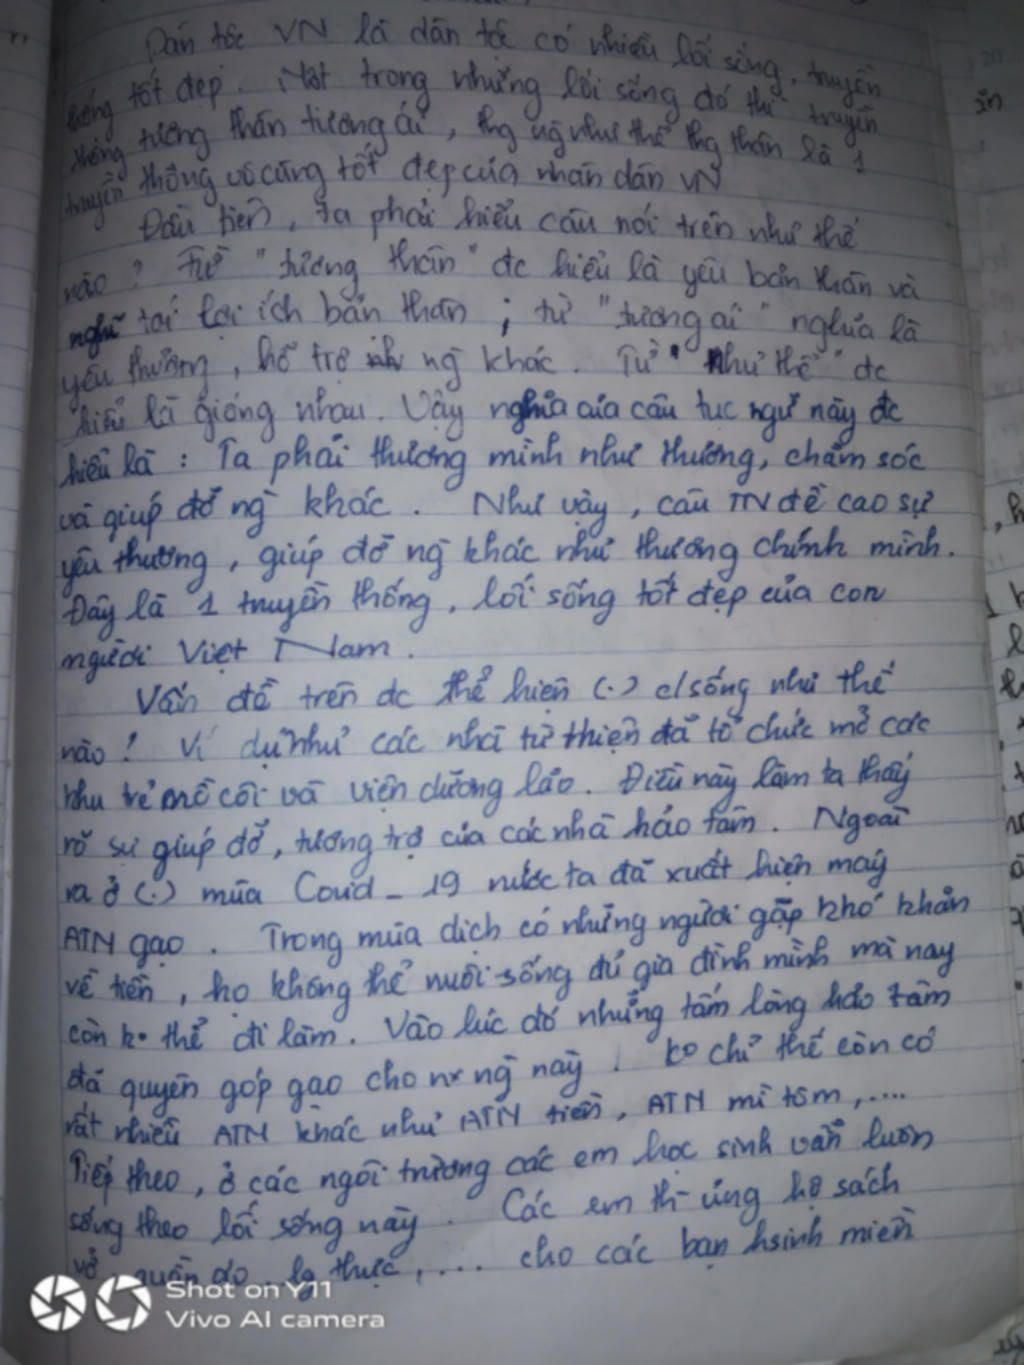 Dân tộc VN là dân tộc có nhiều lối sống, truyền
thống tốt đẹp. Một trong những lối sống đó thì truyền
thống tương thân tương ái, thg ng như thể thg thân là 1
truyền thống vô cùng tốt đẹp của nhân dân VN
Đầu tiên, ta phải hiểu câu nói trên như thế
nào? Từ "tương thân" đc hiểu là yêu bản thân và
nghĩ tới lợi ích bản thân; từ "tương ái" nghĩa là
yêu thương, hỗ trợ ng khác. Từ "như thể" đc
hiểu là giống nhau. Vậy nghĩa của câu tục ngữ này đc
hiểu là: Ta phải thương mình như thương, chăm sóc
và giúp đỡ ng khác. Như vậy, câu TN đề cao sự
yêu thương, giúp đỡ ng khác như thương chính mình.
Đây là 1 truyền thống, lối sống tốt đẹp của con
người Việt Nam.
Vấn đề trên đc thể hiện (.) c/sống như thế
nào! Ví dụ như các nhà từ thiện đã tổ chức mở các
khu trẻ mồ côi và viện dưỡng lão. Điều này làm ta thấy
rõ sự giúp đỡ, tương trợ của các nhà hảo tâm. Ngoài
ra ở (.) mùa Covid-19 nước ta đã xuất hiện máy
ATN gạo. Trong mùa dịch có những người gặp khó khăn
về tiền, họ không thể nuôi sống đủ gia đình mình mà nay
còn ko thể đi làm. Vào lúc đó những tấm lòng hảo tâm
đã quyên góp gạo cho nx ng này! ko chỉ thế còn có
rất nhiều ATN khác như ATN tiền, ATN mì tôm,....
Tiếp theo, ở các ngôi trường các em học sinh vẫn luôn
sống theo lối sống này. Các em th- ủng hộ sách
vở, quần áo, lg thực,.... cho các bạn hsinh miền
Shot on Y11
Vivo AI camera